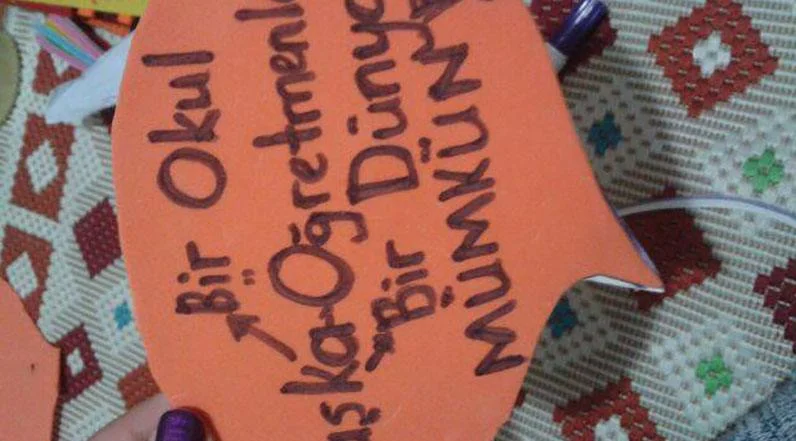 Bir Okul
aşka-Öğretmenl
Bir Dünya
MÜMKÜN